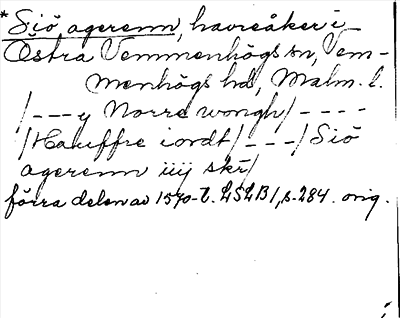 *Siö agerenn, havreåker i
Östra Vemmenhögs sn, Vem-
menhögs hd, Malm. l.
/---y Norre wongh/----
/Hauffre iordt/---/Siö
agerenn iiij skr/
förra delen av 1570-t. LSLB1, s. 284. orig.